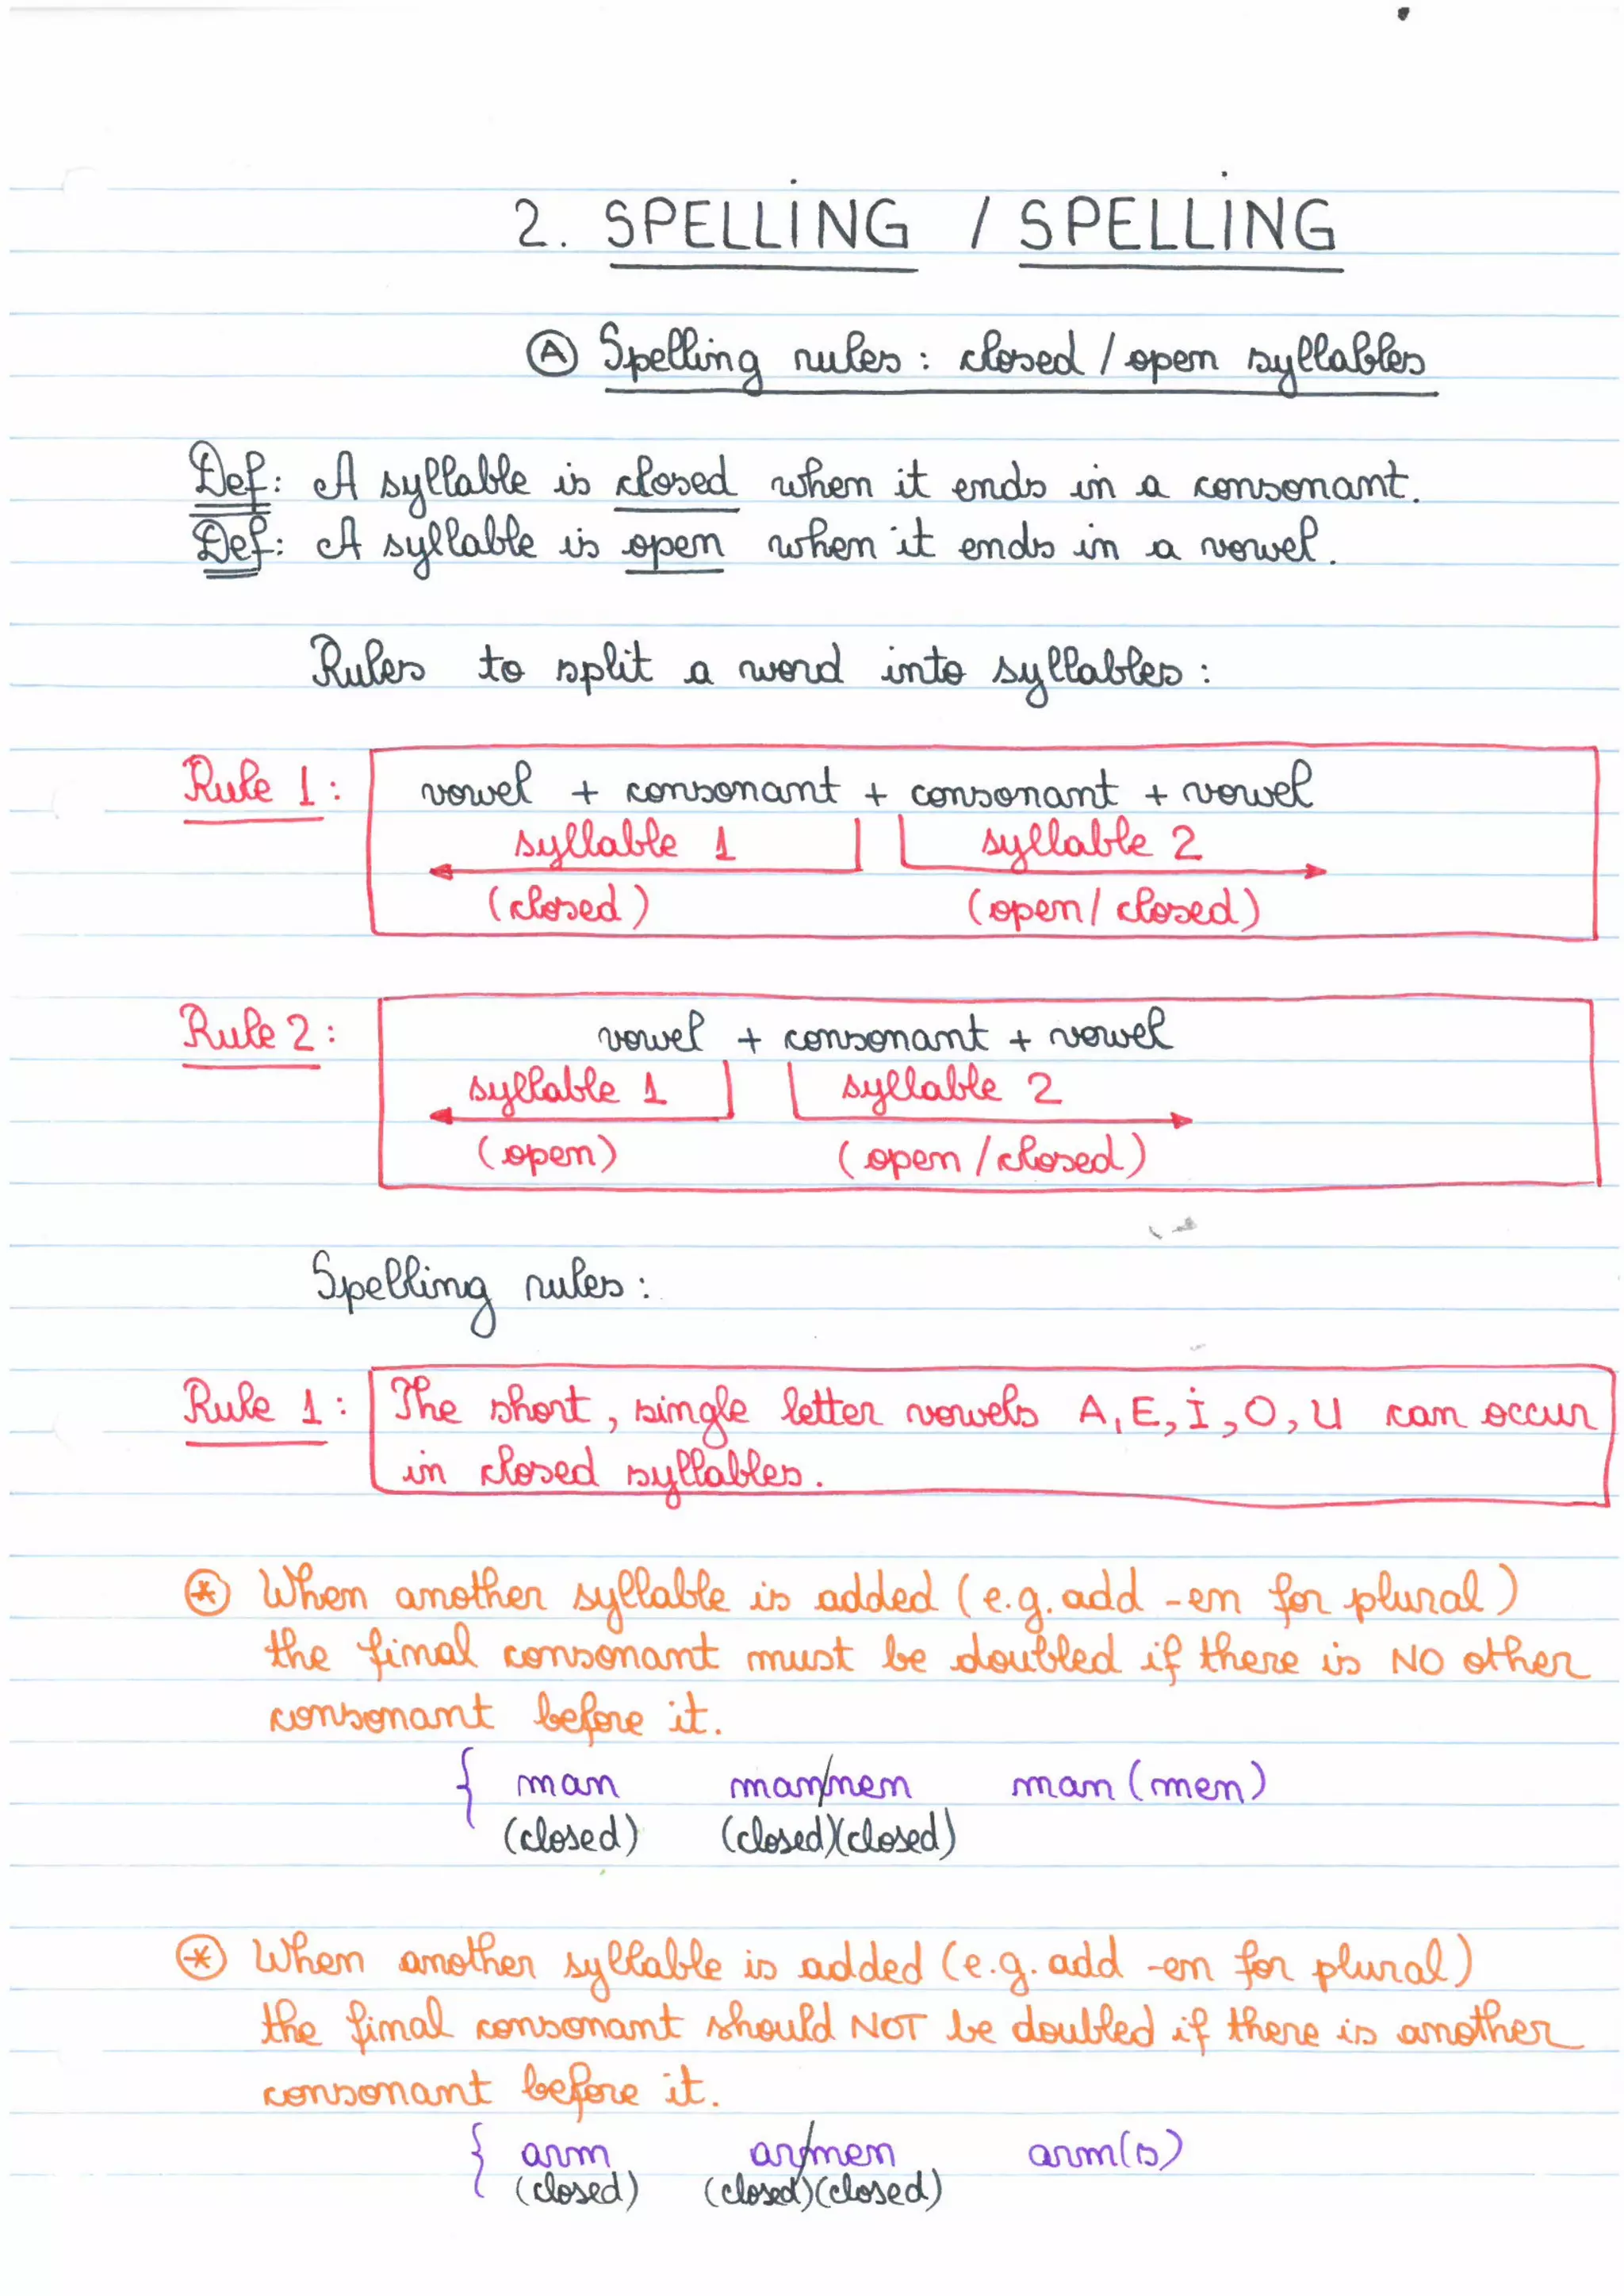 2. SPELLING / SPELLING
Ⓐ Spelling rules: closed / open syllables
Def: A syllable is closed when it ends in a consonant.
Def: A syllable is open when it ends in a vowel.
Rules to split a word into syllables:
Rule 1: vowel + consonant + consonant + vowel
syllable 1 syllable 2
(closed) (open / closed)
Rule 2: vowel + consonant + vowel
syllable 1 syllable 2
(open) (open / closed)
Spelling rules:
Rule 1: The short, single letter vowels A, E, I, O, U can occur
in closed syllables.
* When another syllable is added (e.g. add -en for plural)
the final consonant must be doubled if there is NO other
consonant before it.
{ man man/nen man (men)
(closed) (closed)(closed)
* When another syllable is added (e.g. add -en for plural)
the final consonant should NOT be doubled if there is another
consonant before it.
{ arm ar/men arm(s)
(closed) (closed)(closed)